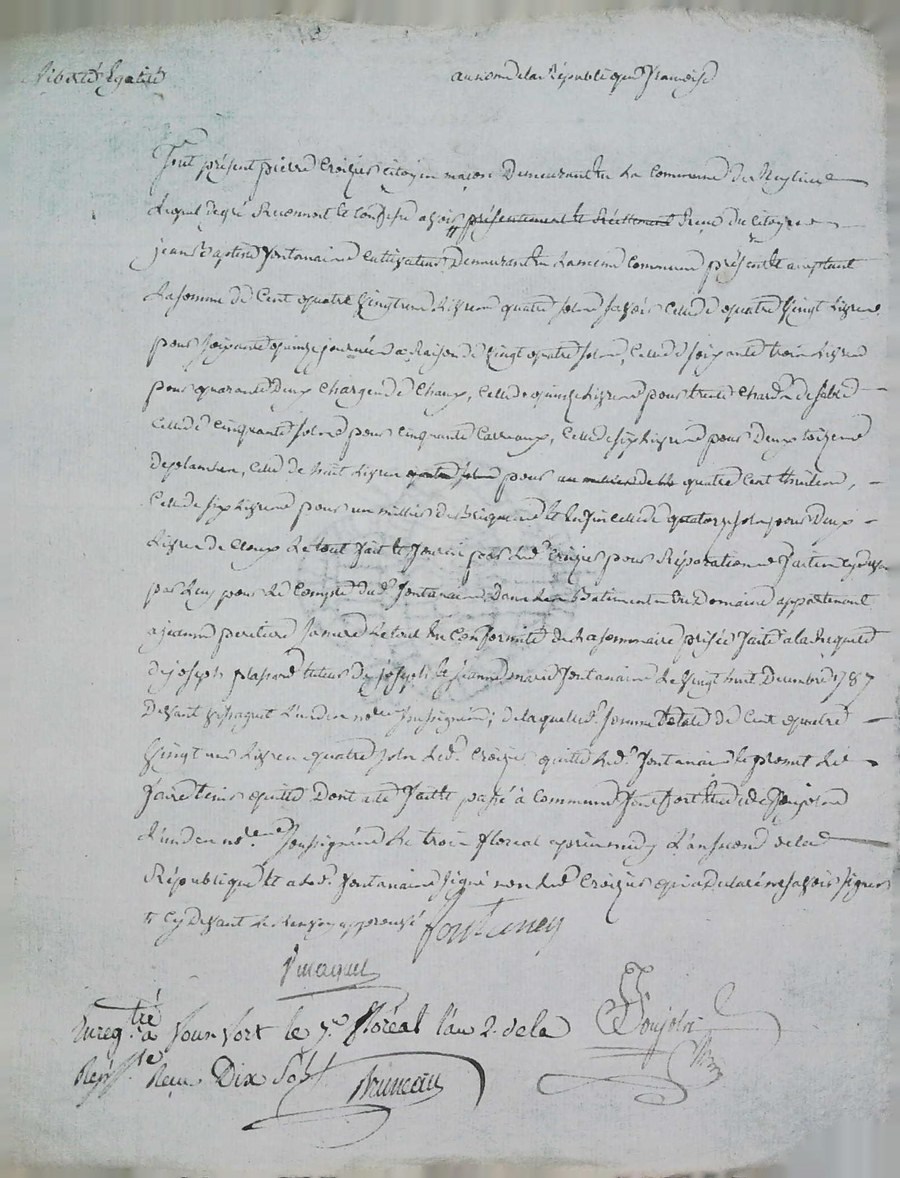 Liberté Egalité
au nom de la République francoise
Fut présent pierre Croizier citoyen macon Demeurant En La Commune De
Lequel degré Reconnoit et Confesse avoir presentement et Réellement Receu Du Citoyen
jean Baptiste fontanaine Cultivateur Demeurant En La meme Commune présent et acceptant
La somme de Cent quatre Vingt une Livres quatre sols savoir Celle de quatre Vingt Livres
pour soixante quinze journées a Raison de Vingt quatre sols, Celle de soixante trois Livres
pour quarante Deux Charges de Chaux, Celle de quinze Livres pour trente Chards de sable
Celle de Cinquante sols pour Cinquante Carreaux, Celle de six Livres pour Deux toizes
De planches, Celle de huit Livres quatre sols pour un millier de quatre Cent thuiles,
Celle de six Livres pour un millier de Bricques et Enfin celle de quatorze sols pour Deux
Livres de Cloux Le tout fait et fourni par led. Croizier pour Réparations faites cy devant
par Luy pour Le Compte dud. fontanaine Dans Les Batiments Du Domaine appartenant
a jeanne peritiere sa mere Le tout En Conformité de La sommaire prisée faite a la Requete
de joseph plassard tuteur de joseph et jeanne marie fontanaine Le Vingt huit Decembre 1787
Devant Vissaguet L'un des nores soussignés; de laquelle d. somme totale de Cent quatre
Vingt une Livres quatre sols Led. Croizier quitte Led. fontanaine et promet Le
faire tenir quitte Dont acte fait et passé à Commune Etude de Goujolon
L'un des nores soussignés Le trois floreal après midy L'an second de la
République Et a Led. fontanaine signé non Led. Croizier qui a Declaré ne savoir signer
cy Devant Le Renvoy approuvé fontaney
Enregtré à le 7.e floréal l'an 2. de la
Repque Reçu Dix Sols Bruneau